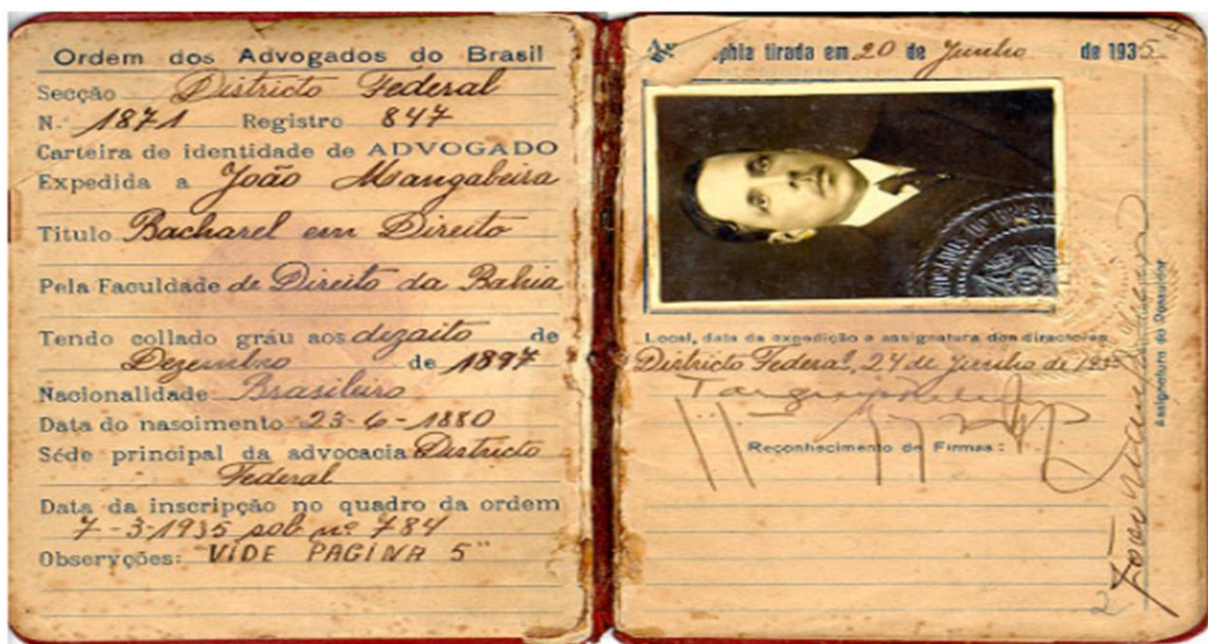 Ordem dos Advogados do Brasil
Secção Districto Federal
N. 1871 Registro 847
Carteira de identidade de ADVOGADO
Expedida a João Mangabeira
Titulo Bacharel em Direito
Pela Faculdade de Direito da Bahia
Tendo collado gráu aos dezaito de
Dezembro de 1897
Nacionalidade Brasileiro
Data do nascimento 23-6-1880
Séde principal da advocacia Districto
Federal
Data da inscripção no quadro da ordem
7-3-1935 sob nº 784
Observções: "VIDE PAGINA 5"
phia tirada em 20 de Junho de 1935
Local, data da expedição e assignatura dos directores
Districto Federal, 24 de Junho de 1935
Reconhecimento de Firmas:
Assignatura do Possuidor
João Mangabeira